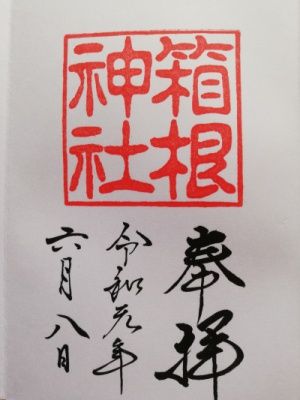 箱根
神社
奉拝
令和元年
六月八日